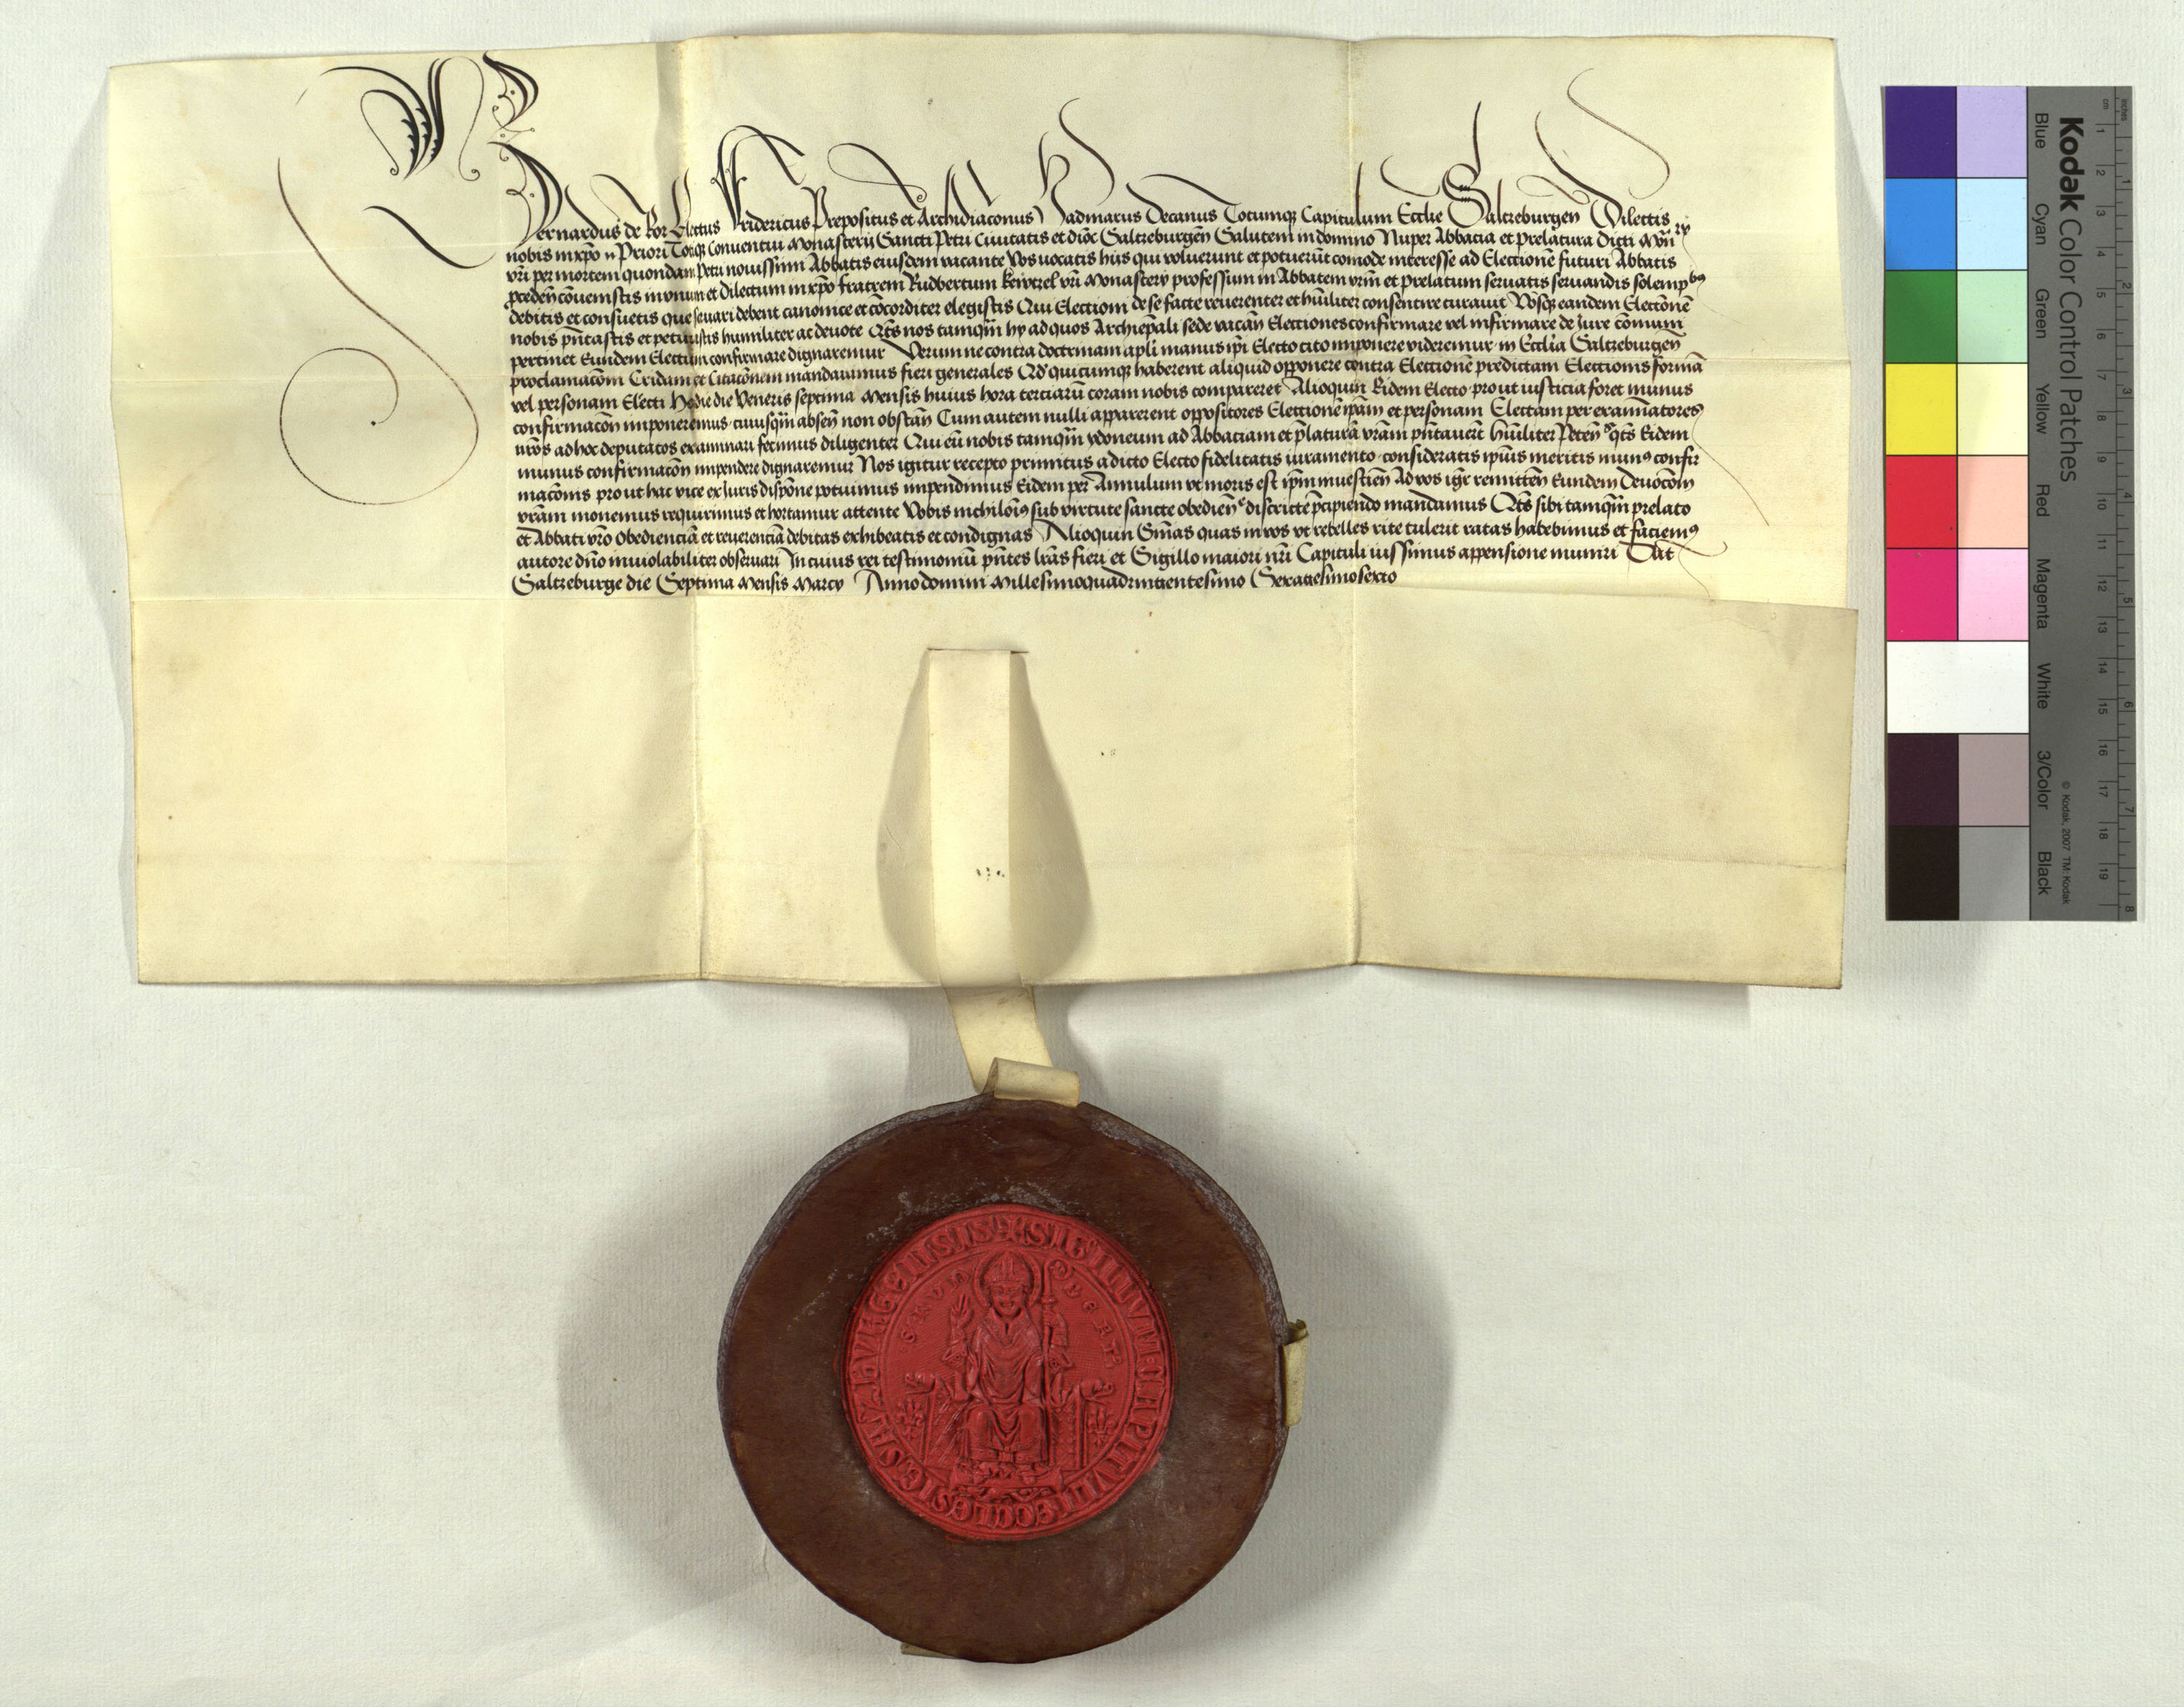 Bernardus de Ror Electus Fridericus Prepositus et Archidiaconus Hadmarus Decanus Totumq Capitulum Ecclie Saltzeburgen Dilectis
nobis in xpo Priori Totiq Conventui Monasterii Sancti Petri Civitatis et dioc Saltzeburgen Salutem in domino Nuper Abbacia et prelatura dicti Mon
vri per mortem quondam Petri novissimi Abbatis eiusdem vacante Vos vocatis hiis qui voluerunt et potuerut comode interesse ad Electione futuri Abbatis
preden convenistis in unum et Dilectum in xpo fratrem Rudbertum vri Monastery professum in Abbatem vrm et prelatum servatis servandis solempbus
debitis et consuetis que servari debent canonice et cocorditer elegistis Qui Electioni de se facte reverenter et huiliter consentire curavit Vosq eandem Electione
nobis pntastis et petivistis humiliter ac devote Qts nos tamqm hy ad quos Archiepali sede vacan Electiones confirmare vel infirmare de Jure comuni
pertinet Eundem Electum confirmare dignaremur Verum ne contra doctrinam apli manus ipi Electo cito imponere videremur in Ecclia Saltzeburgen
proclamacom Cridam et Citacionem mandavimus fieri generales Qd quicumq haberent aliquid opponere contra Electione predictam Electionis forma
vel personam Electi Hodie die Veneris septima Mensis huius hora terciaru coram nobis compareret Alioquin Eidem Electo prout iusticia foret munus
confirmacon imponeremus cuiusqm absen non obstan Cum autem nulli apparerent oppositores Electione ipam et personam Electam per examinatores
nros ad hoc deputatos examinari fecimus diligenter Qui eu nobis tamqm ydoneum ad Abbaciam et platura vram pntavert huiliter Peten qts Eidem
munus confirmacon impendere dignaremur Nos igitur recepto primitus a dicto Electo fidelitatis iuramento consideratis ipius meritis munus confir
macionis prout hac vice ex Juris dispone potuimus impendimus Eidem per Annulum ut moris est ipm investien Ad vos igr remitten Eundem Devocom
vram monemus requirimus et hortamur attente Vobis nichilois sub virtute sancte obedien districte pcipiendo mandamus Qts sibi tamqm prelato
et Abbati vro Obediencia et reverencia debitas exhibeatis et condignas Alioquin Smas quas in vos ut rebelles rite tulerit ratas habebimus et faciemus
autore dno inviolabiliter observari In cuius rei testimoniu pntes lras fieri et Sigillo maiori nri Capituli iussimus appensione muniri Dat
Saltzeburge die Septima Mensis Marcy Anno domini Millesimoquadringentesimo Sexagesimosexto
SIGILLVM CAPITVLI ECCLESIE SALZBVRGENSIS
S RVD BERT
Kodak Color Control Patches
Blue Cyan Green Yellow Red Magenta White 3/Color Black
© Kodak, 2007 TM: Kodak
inches 1 2 3 4 5 6 7 8
cm 1 2 3 4 5 6 7 8 9 10 11 12 13 14 15 16 17 18 19